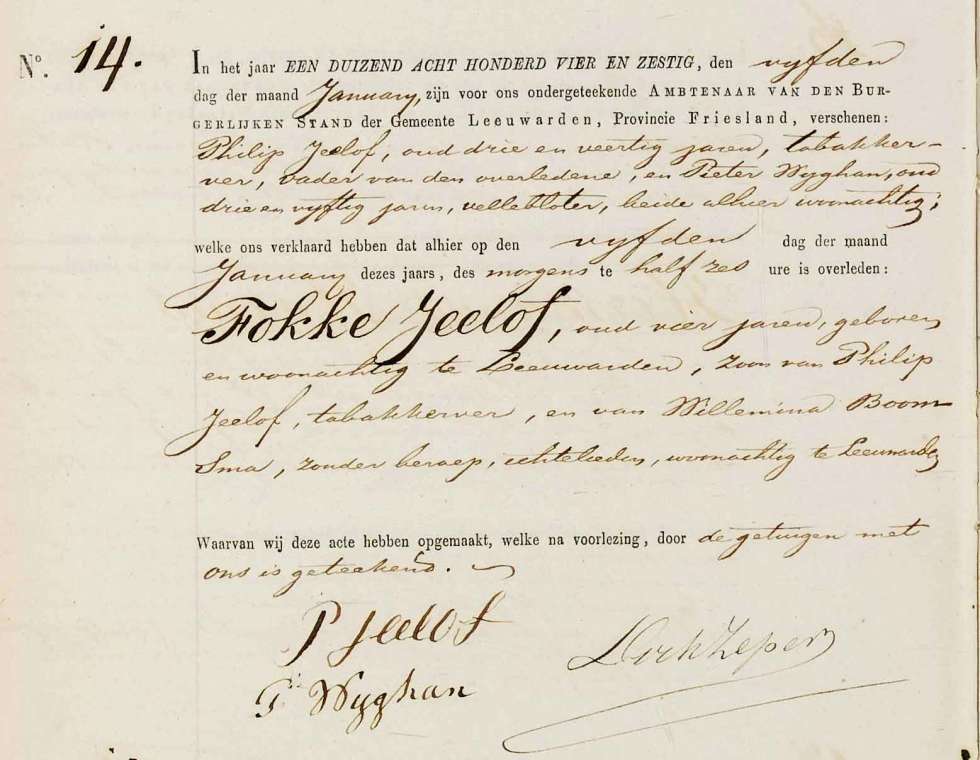 No. 14.
In het jaar EEN DUIZEND ACHT HONDERD VIER EN ZESTIG, den vyfden
dag der maand January, zijn voor ons ondergeteekende AMBTENAAR VAN DEN BUR-
GERLIJKEN STAND der Gemeente Leeuwarden, Provincie Friesland, verschenen:
Philip Jeelof, oud drie en veertig jaren, tabakker-
ver, vader van den overledene, en Pieter Wyghan, oud
drie en vyftig jaren, vellebloter, beide alhier woonachtig;
welke ons verklaard hebben dat alhier op den vyfden dag der maand
January dezes jaars, des morgens te half zes ure is overleden:
Fokke Jeelof, oud vier jaren, geboren
en woonachtig te Leeuwarden, zoon van Philip
Jeelof, tabakkerver, en van Willemina Boom
Sma, zonder beroep, echtelieden, woonachtig te Leeuwarden
Waarvan wij deze acte hebben opgemaakt, welke na voorlezing, door de getuigen met
ons is geteekend.
P Jeelof
P Wyghan